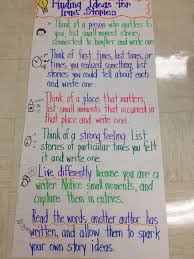 Finding Ideas for
True Stories
Think of a person who matters to
you, list small moment stories
connected to him/her and write one.
Think of first times, last times, or
times you realized something, list
stories you could tell about each
and write one.
Think of a place that matters,
list small moments that occurred in
that place and write one.
Think of a strong feeling. List
stories of particular times you felt
it and write one.
Live differently because you are a
writer. Notice small moments, and
capture them in entries.
Read the words another author has
written, and allow them to spark
your own story ideas.